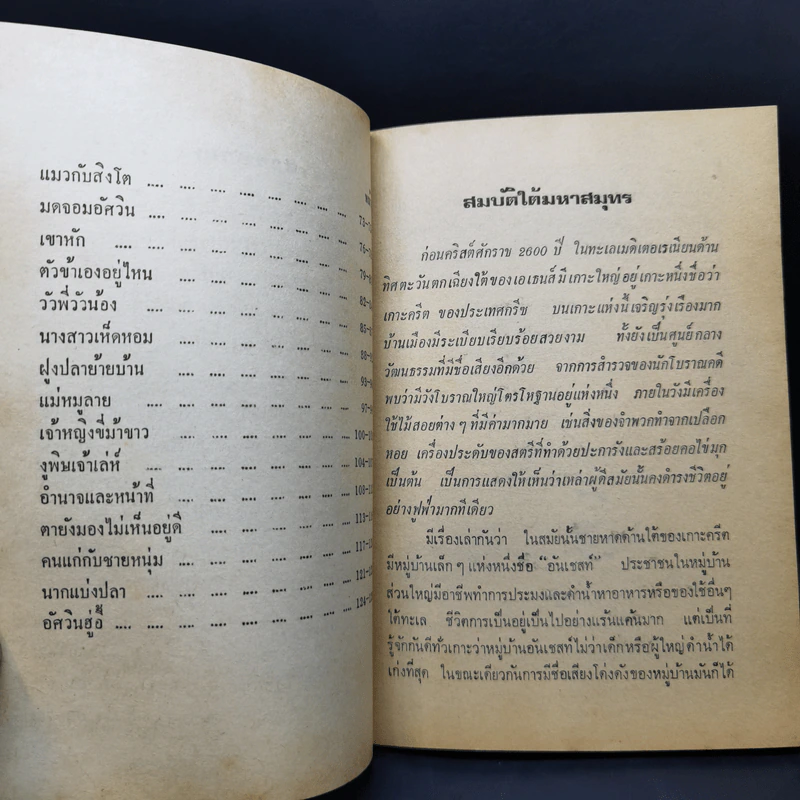 แมวกับสิงโต .... .... .... .... .... .... ....
มดจอมอัศวิน .... .... .... .... .... .... 73-
เขาหัก .... .... .... .... .... .... .... 76-
ตัวข้าเองอยู่ไหน .... .... .... .... .... 79-
วัวพี่วัวน้อง .... .... .... .... .... .... 82-
นางสาวเห็ดหอม .... .... .... .... .... 85-
ฝูงปลาย้ายบ้าน .... .... .... .... .... 88-
แม่หมูลาย .... .... .... .... .... .... 93-
เจ้าหญิงขี่ม้าขาว .... .... .... .... .... 97-
งูพิษเจ้าเล่ห์ .... .... .... .... .... 100-
อำนาจและหน้าที่ .... .... .... .... .... 104-
ตายังมองไม่เห็นอยู่ดี .... .... .... .... 108-
คนแก่กับชายหนุ่ม .... .... .... .... .... 113-
นากแบ่งปลา .... .... .... .... .... 117-
อัศวินฮู่อี้ .... .... .... .... .... .... 121-
124-
สมบัติใต้มหาสมุทร
ก่อนคริสต์ศักราช 2600 ปี ในทะเลเมดิเตอเรเนียนด้าน
ทิศตะวันตกเฉียงใต้ของเอเธนส์มีเกาะใหญ่อยู่เกาะหนึ่งชื่อว่า
เกาะครีต ของประเทศกรีซ บนเกาะแห่งนี้เจริญรุ่งเรืองมาก
บ้านเมืองมีระเบียบเรียบร้อยสวยงาม ทั้งยังเป็นศูนย์กลาง
วัฒนธรรมที่มีชื่อเสียงอีกด้วย จากการสำรวจของนักโบราณคดี
พบว่ามีวังโบราณใหญ่โตรโหฐานอยู่แห่งหนึ่ง ภายในวังมีเครื่อง
ใช้ไม้สอยต่างๆ ที่มีค่ามากมาย เช่นสิ่งของจำพวกทำจากเปลือก
หอย เครื่องประดับของสตรีที่ทำด้วยปะการังและสร้อยคอไข่มุก
เป็นต้น เป็นการแสดงให้เห็นว่าเหล่าผู้ดีสมัยนั้นคงดำรงชีวิตอยู่
อย่างฟูฟ่ามากทีเดียว
มีเรื่องเล่ากันว่า ในสมัยนั้นชายหาดด้านใต้ของเกาะครีต
มีหมู่บ้านเล็กๆ แห่งหนึ่งชื่อ “อันเชสท์” ประชาชนในหมู่บ้าน
ส่วนใหญ่มีอาชีพทำการประมงและดำน้ำหาอาหารหรือของใช้อื่นๆ
ใต้ทะเล ชีวิตการเป็นอยู่เป็นไปอย่างแร้นแค้นมาก แต่เป็นที่
รู้จักกันดีทั่วเกาะว่าหมู่บ้านอันเชสท์ไม่ว่าเด็กหรือผู้ใหญ่ดำน้ำได้
เก่งที่สุด ในขณะเดียวกันการมีชื่อเสียงโด่งดังของหมู่บ้านมันก็ได้